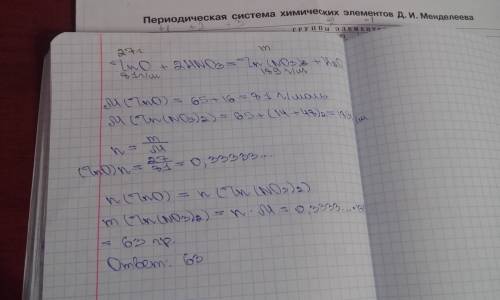 Периодическая система химических элементов Д. И. Менделеева
ГРУППЫ ЭЛЕМЕНТ
27г m
ZnO + 2HNO3 = Zn(NO3)2 + H2O
81г/м 189 г/м
M(ZnO) = 65+16 = 81 г/моль
M(Zn(NO3)2) = 65 + (14+48)2 = 189 г/м
n = m/M
(ZnO) n = 27/81 = 0,33333...
n(ZnO) = n(Zn(NO3)2)
m(Zn(NO3)2) = n · M = 0,3333...
= 63 гр.
Ответ: 63